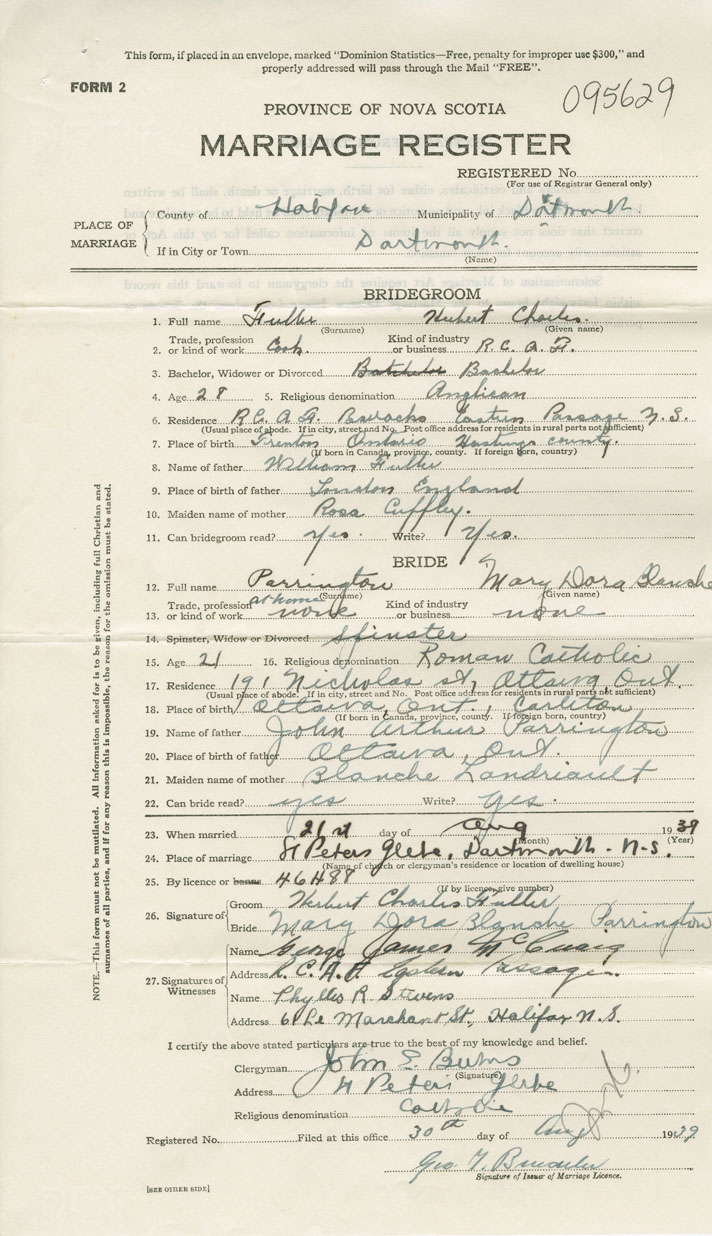 This form, if placed in an envelope, marked "Dominion Statistics—Free, penalty for improper use $300," and
properly addressed will pass through the Mail "FREE".
FORM 2
095629
PROVINCE OF NOVA SCOTIA
MARRIAGE REGISTER
REGISTERED No.
(For use of Registrar General only)
PLACE OF MARRIAGE
County of Halifax Municipality of Dartmouth.
If in City or Town Dartmouth.
(Name)
BRIDEGROOM
1. Full name Fuller Hubert Charles.
(Surname) (Given name)
2. Trade, profession or kind of work Cook. Kind of industry or business R.C.A.F.
3. Bachelor, Widower or Divorced Batchelor Bachelor
4. Age 28 5. Religious denomination Anglican
6. Residence R.C.A.F. Barracks Eastern Passage N.S.
(Usual place of abode. If in city, street and No. Post office address for residents in rural parts not sufficient)
7. Place of birth Trenton Ontario Hastings county.
(If born in Canada, province, county. If foreign born, country)
8. Name of father William Fuller
9. Place of birth of father London England
10. Maiden name of mother Rosa Cuffley.
11. Can bridegroom read? Yes. Write? Yes.
BRIDE
12. Full name Parrington Mary Dora Blanche
(Surname) (Given name)
13. Trade, profession or kind of work at home none Kind of industry or business none
14. Spinster, Widow or Divorced Spinster
15. Age 21 16. Religious denomination Roman Catholic
17. Residence 191 Nicholas st, Ottawa, Ont.
(Usual place of abode. If in city, street and No. Post office address for residents in rural parts not sufficient)
18. Place of birth Ottawa, Ont., Carlton
(If born in Canada, province, county. If foreign born, country)
19. Name of father John Arthur Parrington
20. Place of birth of father Ottawa, Ont.
21. Maiden name of mother Blanche Landriault
22. Can bride read? yes Write? yes.
23. When married 21st day of Aug 1939
(Month) (Year)
24. Place of marriage St Peters Glebe, Dartmouth - N-S.
(Name of church or clergyman's residence or location of dwelling house)
25. By licence or banns 46488
(If by licence, give number)
26. Signature of
Groom Hubert Charles Fuller
Bride Mary Dora Blanche Parrington
27. Signatures of Witnesses
Name George James McCuaig
Address R.C.A.F. Eastern Passage.
Name Phyllis R Stevens
Address 61 Le Marchant St, Halifax N.S.
I certify the above stated particulars are true to the best of my knowledge and belief.
Clergyman John E Burns
(Signature)
Address St Peters Glebe
Religious denomination Catholic
Registered No. Filed at this office 30th day of Aug 1939
Geo.
Signature of Issuer of Marriage Licence.
[SEE OTHER SIDE]
NOTE.—This form must not be mutilated. All information asked for is to be given, including full Christian and
surnames of all parties, and if for any reason this is impossible, the reason for the omission must be stated.